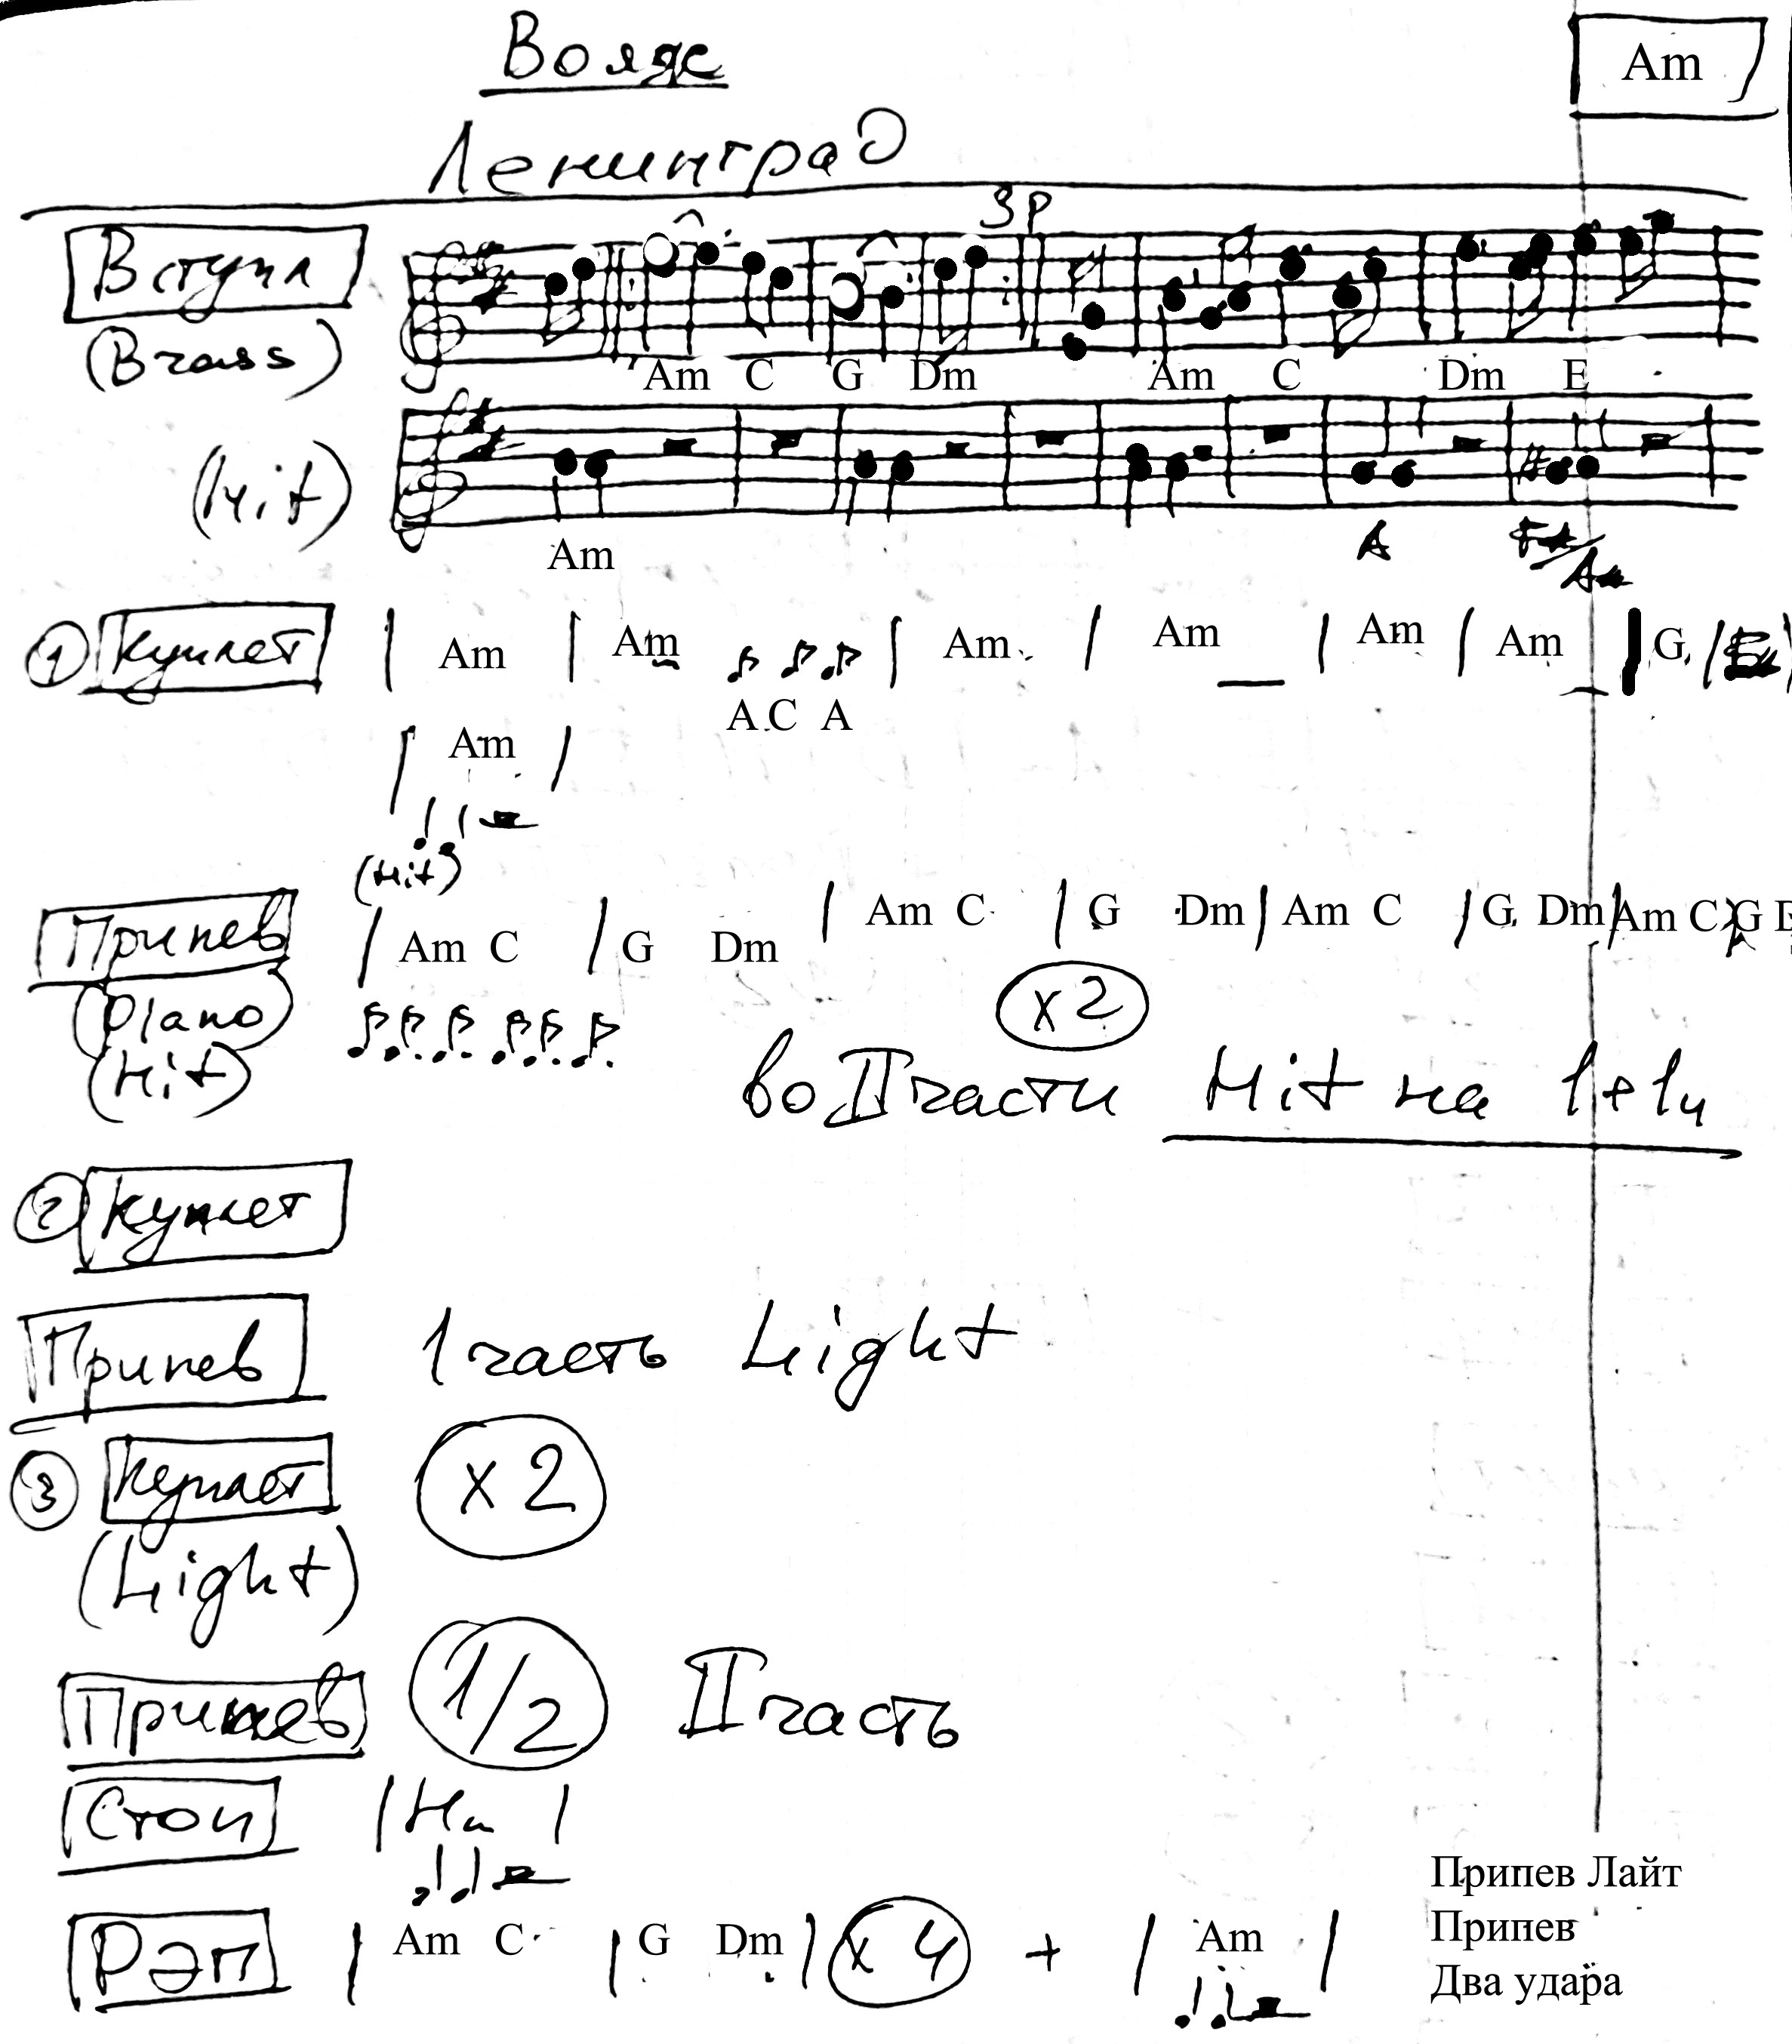 Вояж
Am
Ленинград
3р
Вступл
(Brass)
Am C G Dm Am C Dm E
(Hit)
Am
A
① Куплет | Am | Am | Am | Am | Am | Am | G
A C A
| Am |
(Hit)
Припев | Am C | G Dm | Am C | G Dm | Am C | G Dm | Am C G
(Piano)
(Hit)
x 2
во II части Hit на 1+1и
② Куплет
Припев 1 часть Light
③ Куплет x 2
(Light)
Припев 1/2 II часть
Стоп
Рэп | Am C | G Dm | x 4 + | Am |
Припев Лайт
Припев
Два удара